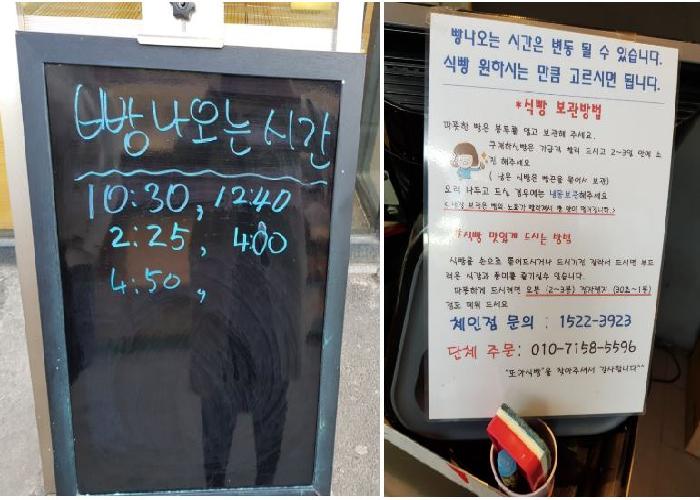 빵나오는시간
10:30, 12:40
2:25, 4:00
4:50,
빵나오는 시간은 변동 될 수 있습니다.
식빵 원하시는 만큼 고르시면 됩니다.
*식빵 보관방법
따뜻한 빵은 봉투를 열고 보관해 주세요.
구매하신빵은 가급적 빨리 드시고 2~3일 안에 소
진 해주세요
( 남은 식빵은 빵끈을 묶어서 보관)
오래 나두고 드실 경우에는 냉동보관해주세요
빵의 노화가 빨라져서 빵 맛이
*식빵 맛있게 드시는 방법
식빵을 손으로 뜯어드시거나 드시기전 잘라서 드시면 부드
러운 식감과 풍미를 즐기실수 있습니다.
따뜻하게 드시려면 오븐 (2~3분) 전자렌지 (30초~1분)
정도 데워 드세요
체인점 문의 : 1522-3923
단체 주문: 010-7158-5596
"또아식빵"을 찾아주셔서 감사합니다^^